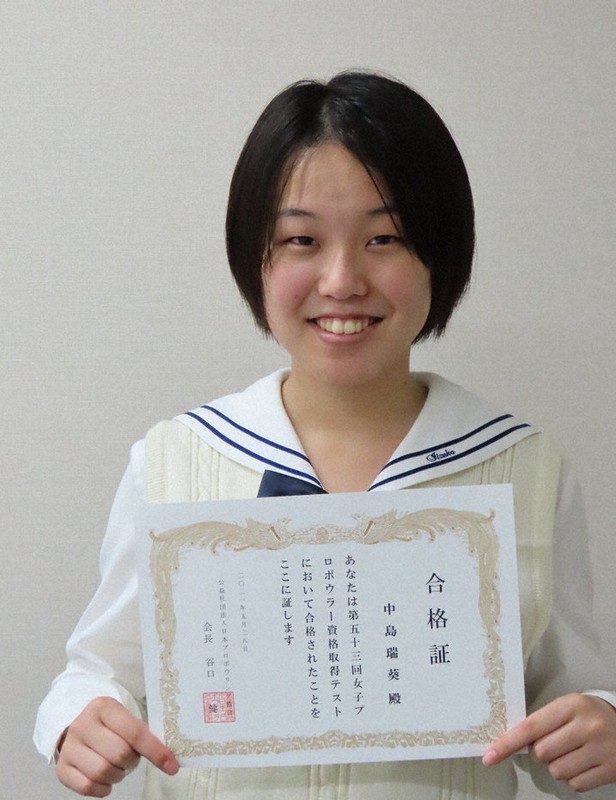 合格証
中島瑞葵 殿
あなたは第五十三回女子プ
ロボウラー資格取得テスト
において合格されたことを
ここに証します
二〇二一年五月二八日
公益社団法人日本プロボウラ
会長 谷口
健